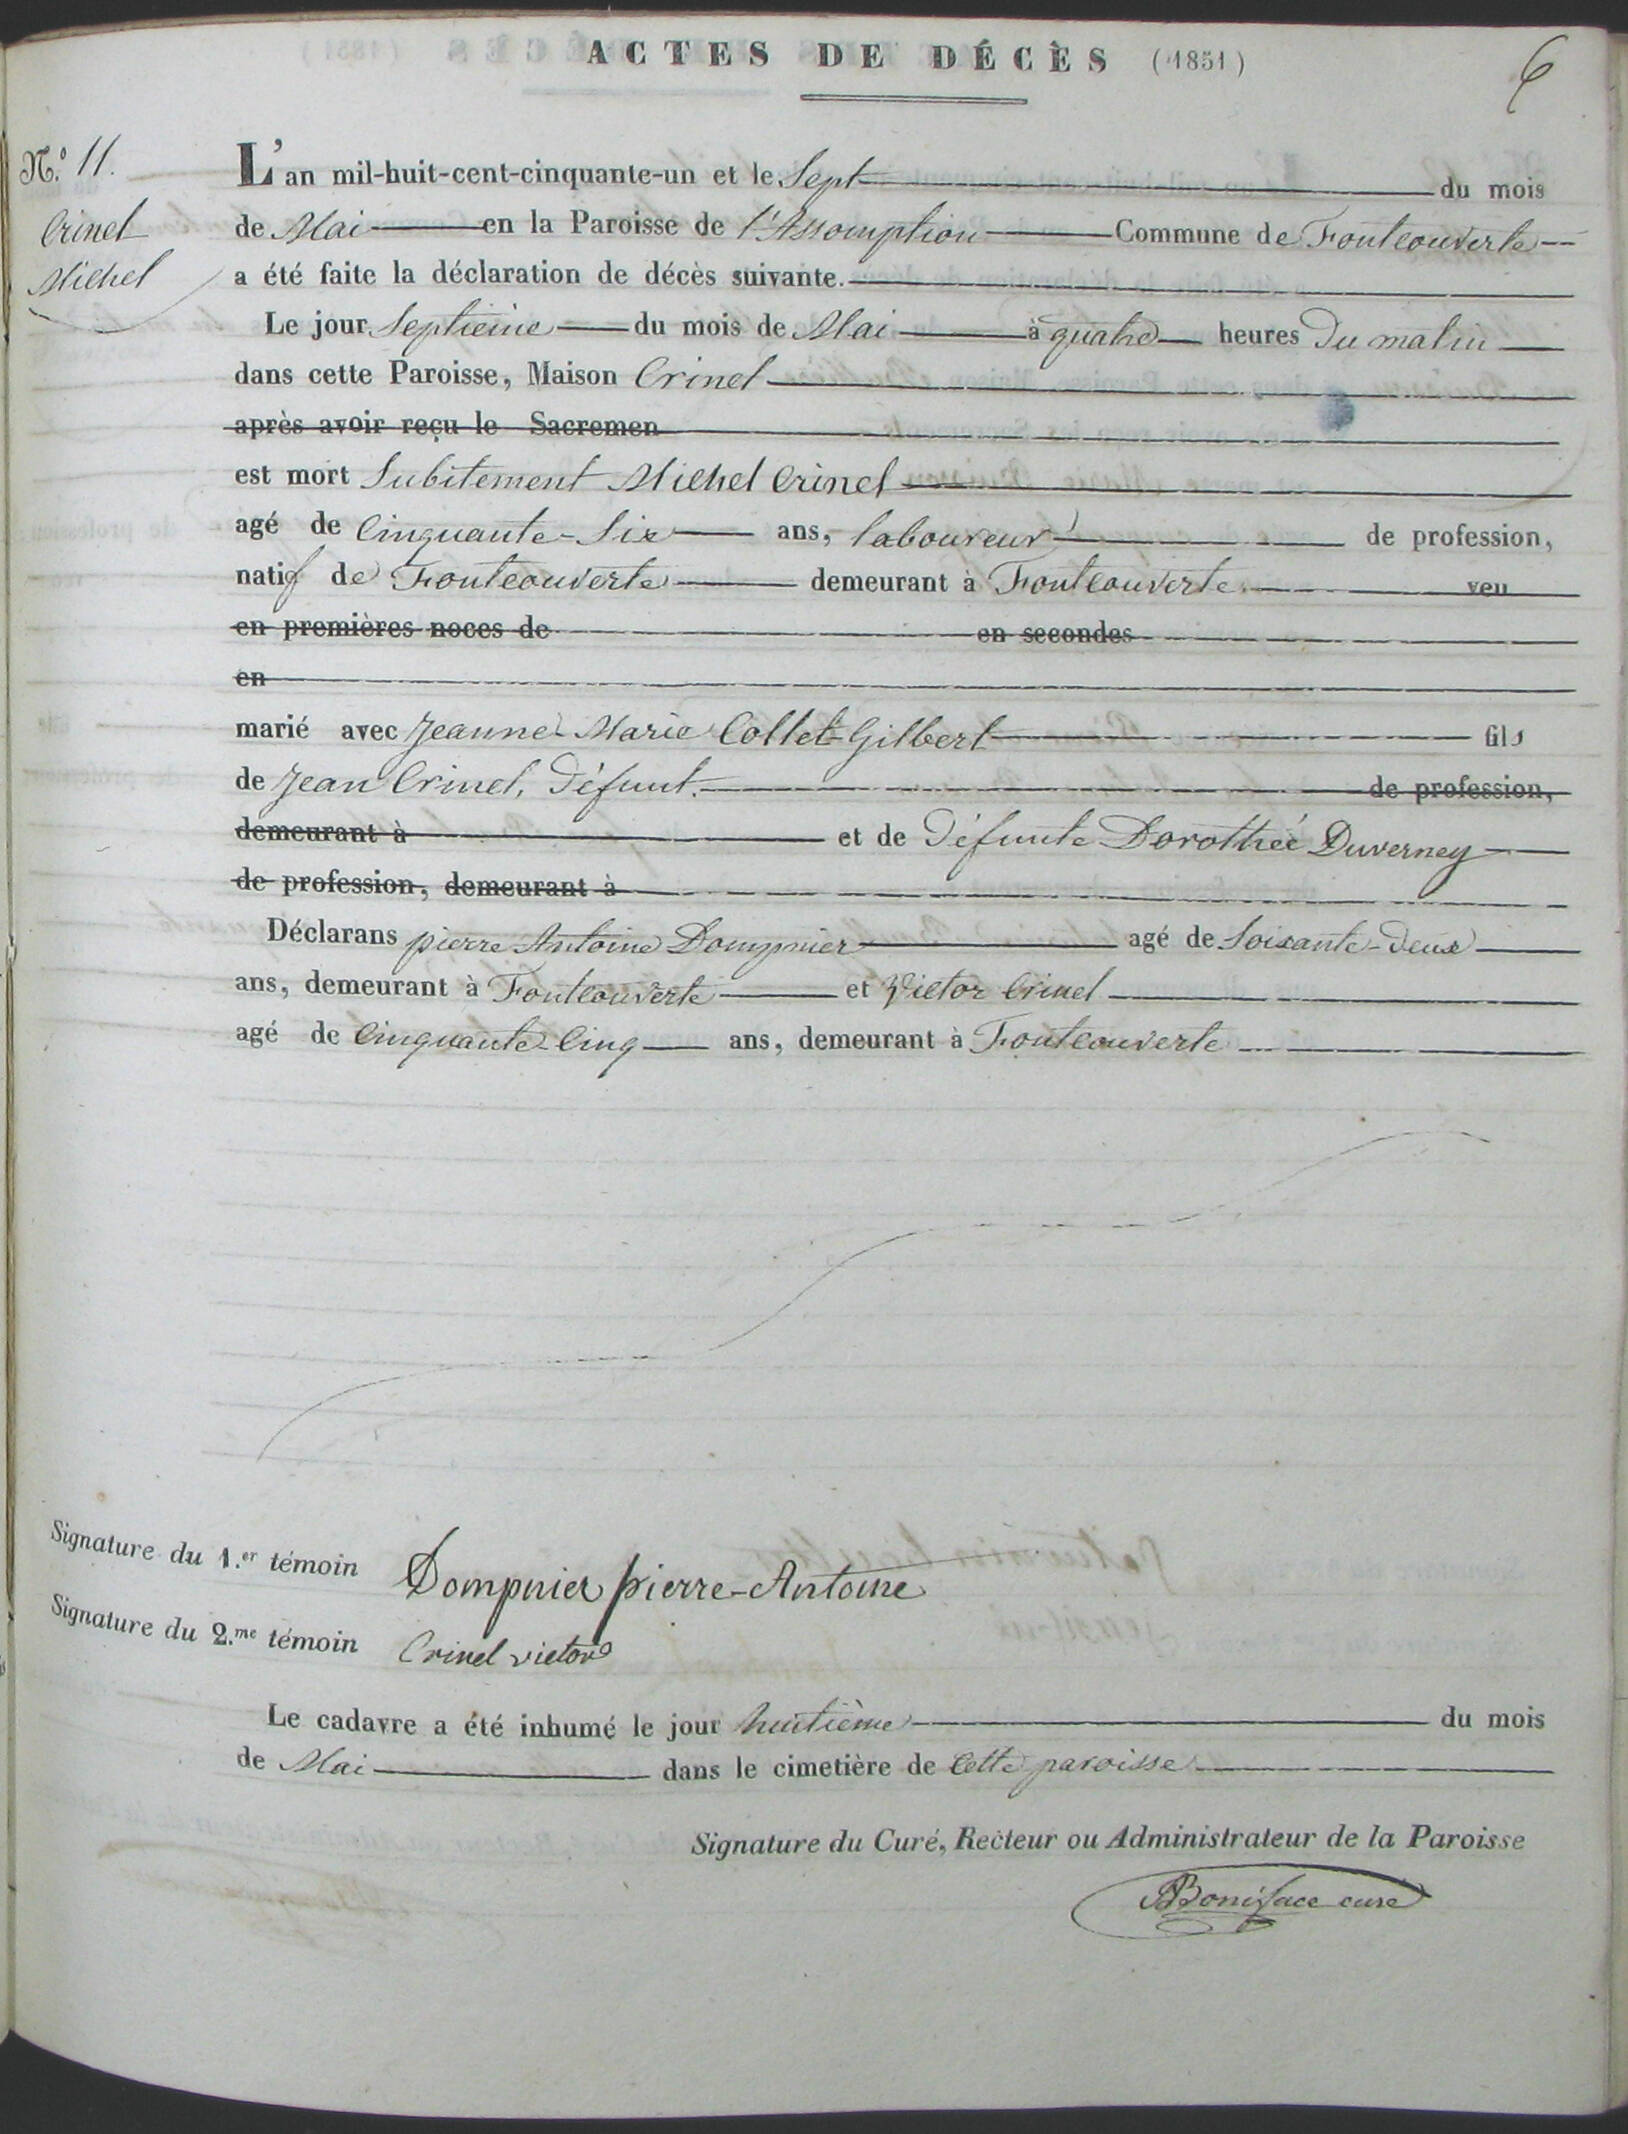 ACTES DE DÉCÈS (1851)
6
N.º 11.
Crinel
Michel
L'an mil-huit-cent-cinquante-un et le Sept du mois
de Mai en la Paroisse de l'Assomption Commune de Fontcouverte
a été faite la déclaration de décès suivante.
Le jour Septième du mois de Mai à quatre heures Du matin
dans cette Paroisse, Maison Crinel
après avoir reçu le Sacremen
est mort Subitement Michel Crinel
agé de Cinquante-Six ans, laboureur de profession,
natif de Fontcouverte demeurant à Fontcouverte veu
en premières noces de en secondes
en
marié avec Jeanne-Marie Collet-Gilbert fils
de Jean Crinel, Défunt. de profession,
demeurant à et de Défunte Dorothée Duverney
de profession, demeurant à
Déclarans pierre Antoine Dompnier agé de Soixante-Deux
ans, demeurant à Fontcouverte et Victor Crinel
agé de Cinquante-Cinq ans, demeurant à Fontcouverte
Signature du 1.er témoin Dompnier pierre-Antoine
Signature du 2.me témoin Crinel victor
Le cadavre a été inhumé le jour huitième du mois
de Mai dans le cimetière de Cette paroisse
Signature du Curé, Recteur ou Administrateur de la Paroisse
Boniface curé